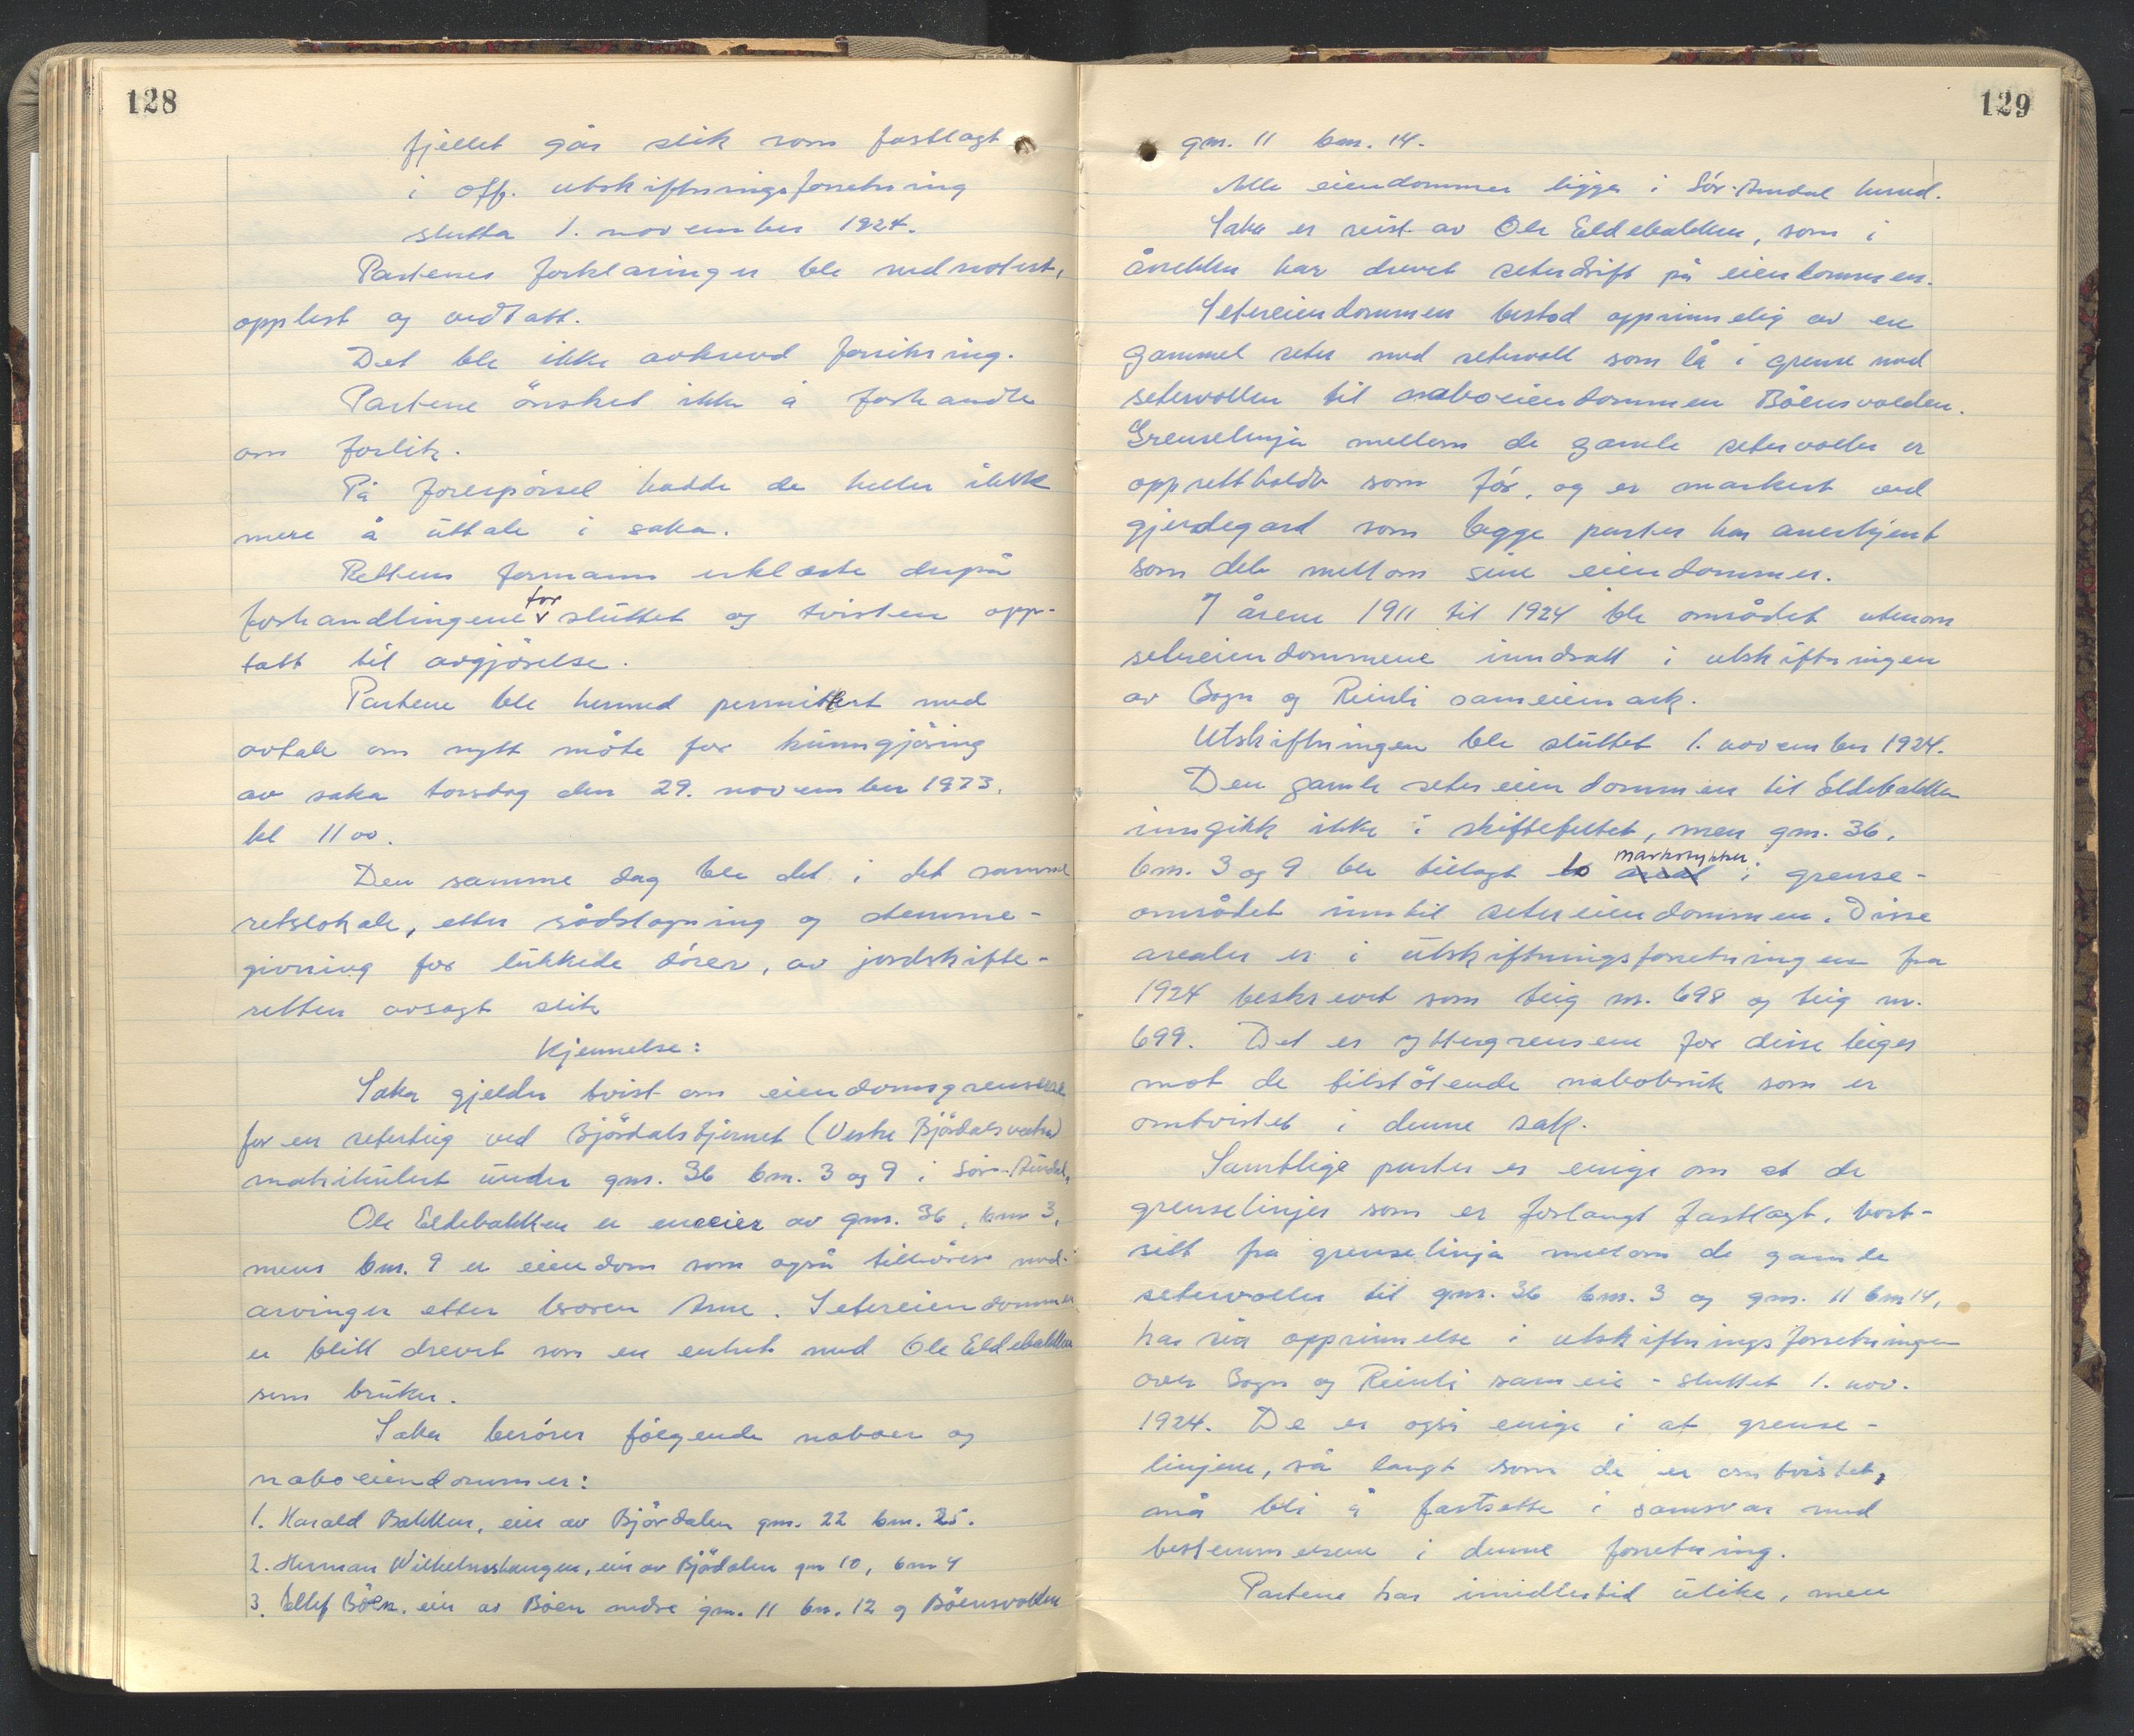 128
fjellet går slik som fastlagt
i off. utskiftningsforretning
slutta 1. november 1924.
Partenes forklaringer ble nednotert,
opplest og vedtatt.
Det ble ikke avkrevd forsikring.
Partene önsket ikke å forhandle
om forlik.
På forespörsel hadde de heller ikke
mere å uttale i saka.
Rettens formann erklærte derpå
forhandlingene for sluttet og tvisten opp-
tatt til avgjörelse.
Partene ble hermed permittert med
avtale om nytt möte for kunngjöring
av saka torsdag den 29. november 1973.
kl 11 00.
Den samme dag ble det i det samme
retslokale, etter rådslagning og stemme-
givning for lukkede dörer, av jordskifte-
retten avsagt slik
Kjennelse:
Saka gjelder tvist om eiendomsgrensene
for en seterteig ved Björdalstjernet (Vestre Björdalsvatn)
matrikulert under gnr. 36 bnr. 3 og 9 i Sör-Aurdal,
Ole Eldebakken er eneeier av gnr. 36, bnr 3,
mens bnr. 9 er eiendom som også tilhörer med-
arvinger etter broren Arne. Setereiendommen
er blitt drevet som en enhet med Ole Eldebakken
som bruker.
Saka berörer fölgende naboer og
naboeiendommer:
1. Harald Bakken, eier av Björdalen gnr. 22 bnr. 25.
2. Herman Wilhelmshaugen, eier av Bjödalen gnr 10, bnr 4
3. Ellef Böen. eier av Böen nedre gnr. 11 bnr. 12 og Böensvolden
129
gnr. 11 bnr. 14.
Alle eiendommer ligger i Sör-Aurdal herred.
Saka er reist av Ole Eldebakken, som i
årrekker har drevet seterdrift på eiendommen.
Setereiendommen bestod opprinnelig av en
gammel seter med setervoll som lå i grense med
setervollen til naboeiendommen Böensvolden.
Grenselinja mellom de gamle setervoller er
opprettholdt som för, og er markert ved
gjerdegard som begge parter har anerkjent
som dele mellom sine eiendommer.
I årene 1911 til 1924 ble området utenom
setereiendommene inndratt i utskiftningen
av Bagn og Reinli sameiemark.
Utskiftningen ble sluttet 1. november 1924.
Den gamle setereiendommen til Eldebakken
inngikk ikke i skiftefeltet, men gnr. 36,
bnr. 3 og 9 ble tillagt to areal markstykker i grense-
området inntil setereiendommen. Disse
arealer er i utskiftningsforretningen fra
1924 beskrevet som teig nr. 698 og teig nr.
699. Det er yttergrensene for disse teiger
mot de tilstötende nabobruk som er
omtvistet i denne sak.
Samtlige parter er enige om at de
grenselinjer som er forlangt fastlagt, bort-
sett fra grenselinja mellom de gamle
setervoller til gnr. 36 bnr. 3 og gnr. 11 bnr 14,
har sin opprinnelse i utskiftningsforretningen
over Bagn og Reinli sameie - sluttet 1. nov.
1924. De er også enige i at grense-
linjene, så langt som de er omtvistet,
må bli å fastsette i samsvar med
bestemmelsene i denne forretning.
Partene har imidlertid ulike, men